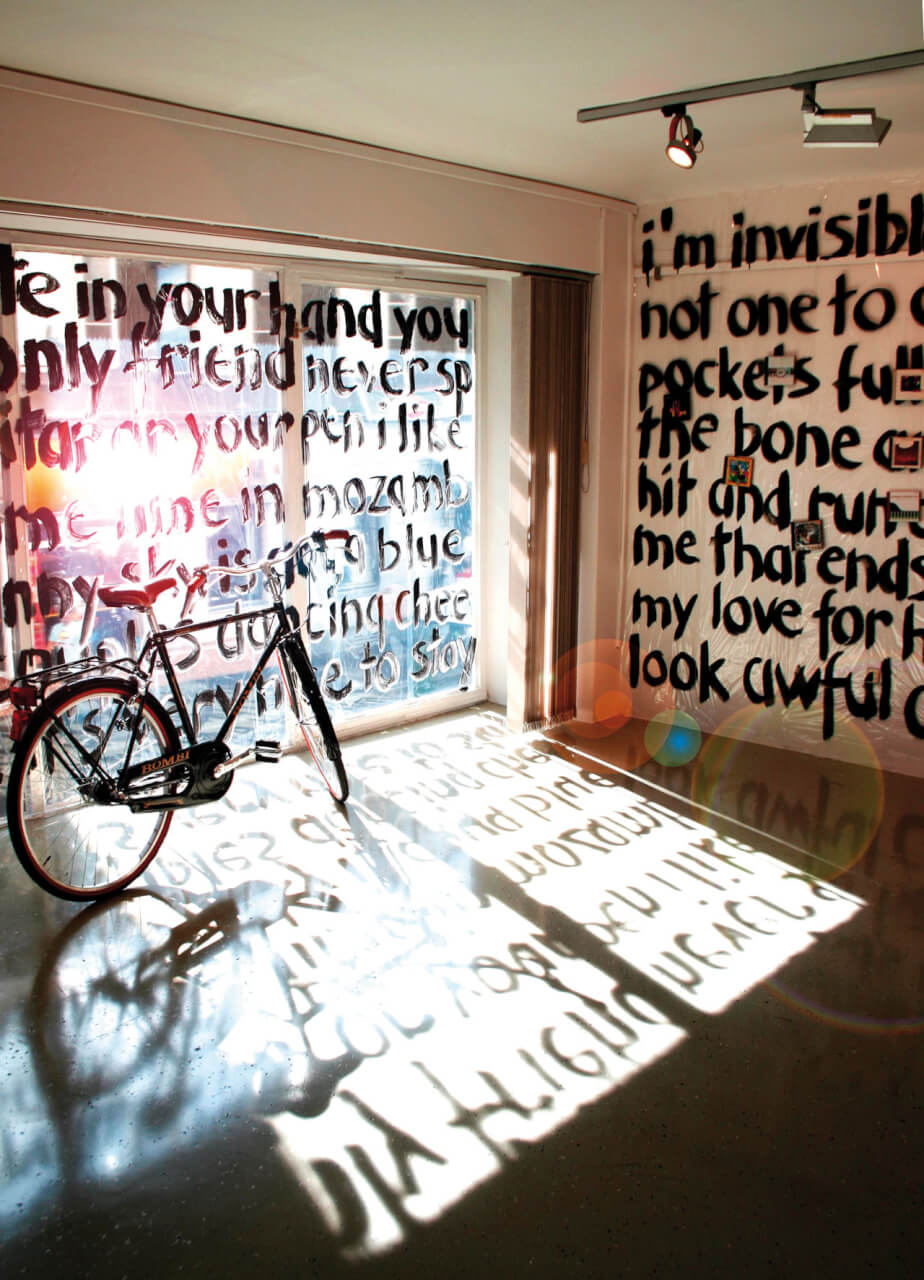 te in your hand you
only friend never sp
itar or your pen i like
me mine in mozamb
nny sky is not a blue
couples dancing chee
is every to stay
i'm invisibl
not one to
pockets full
the bone
hit and run
me that ends
my love for h
look awful
BOMBI